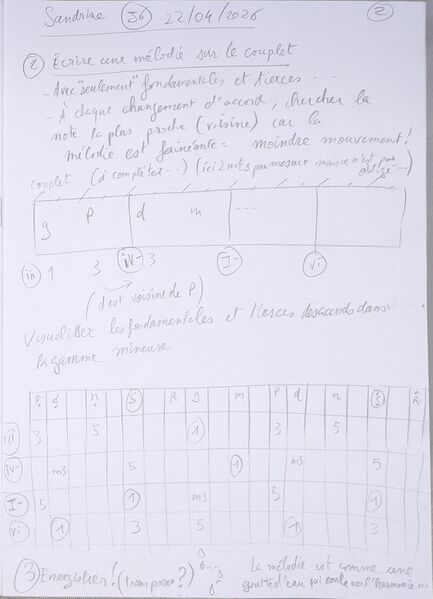 Sandrine 56 22/04/2026 2
2 Écrire une mélodie sur le couplet
- Avec "seulement" fondamentales et tierces ...
- À chaque changement d'accord, chercher la
note la plus proche (voisine) car la
mélodie est fainéante = moindre mouvement!
couplet (à compléter...) (ici 2 notes par mesure mais ce n'est pas
obligé...)
g P d m ...
iii 1 3 iv- 3 I- vi
(d est voisine de P)
Visualiser les fondamentales et tierces des accords dans
la gamme mineure
P d n S R g m P d n S R
iii 3 5 1 3 5
iv- m3 5 1 m3 5
I- 5 1 m3 5 1
vi 1 3 5 1 3
3 Enregistrer! (transposer?)
La mélodie est comme une
goutte d'eau qui coule sur l'harmonie...